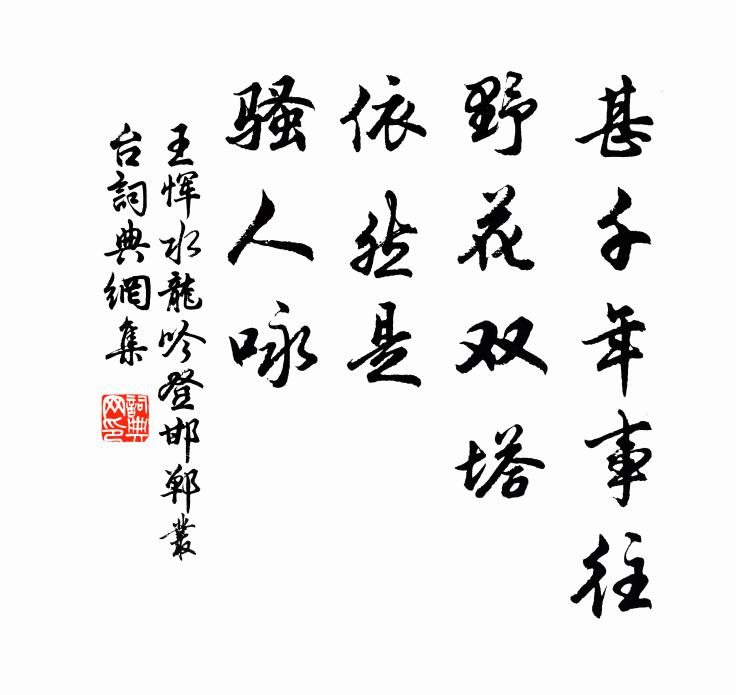 甚千年事往
野花双塔
依然是
骚人咏
王恽水龍吟登邯郸叢
台詞典網集
詞典
网印